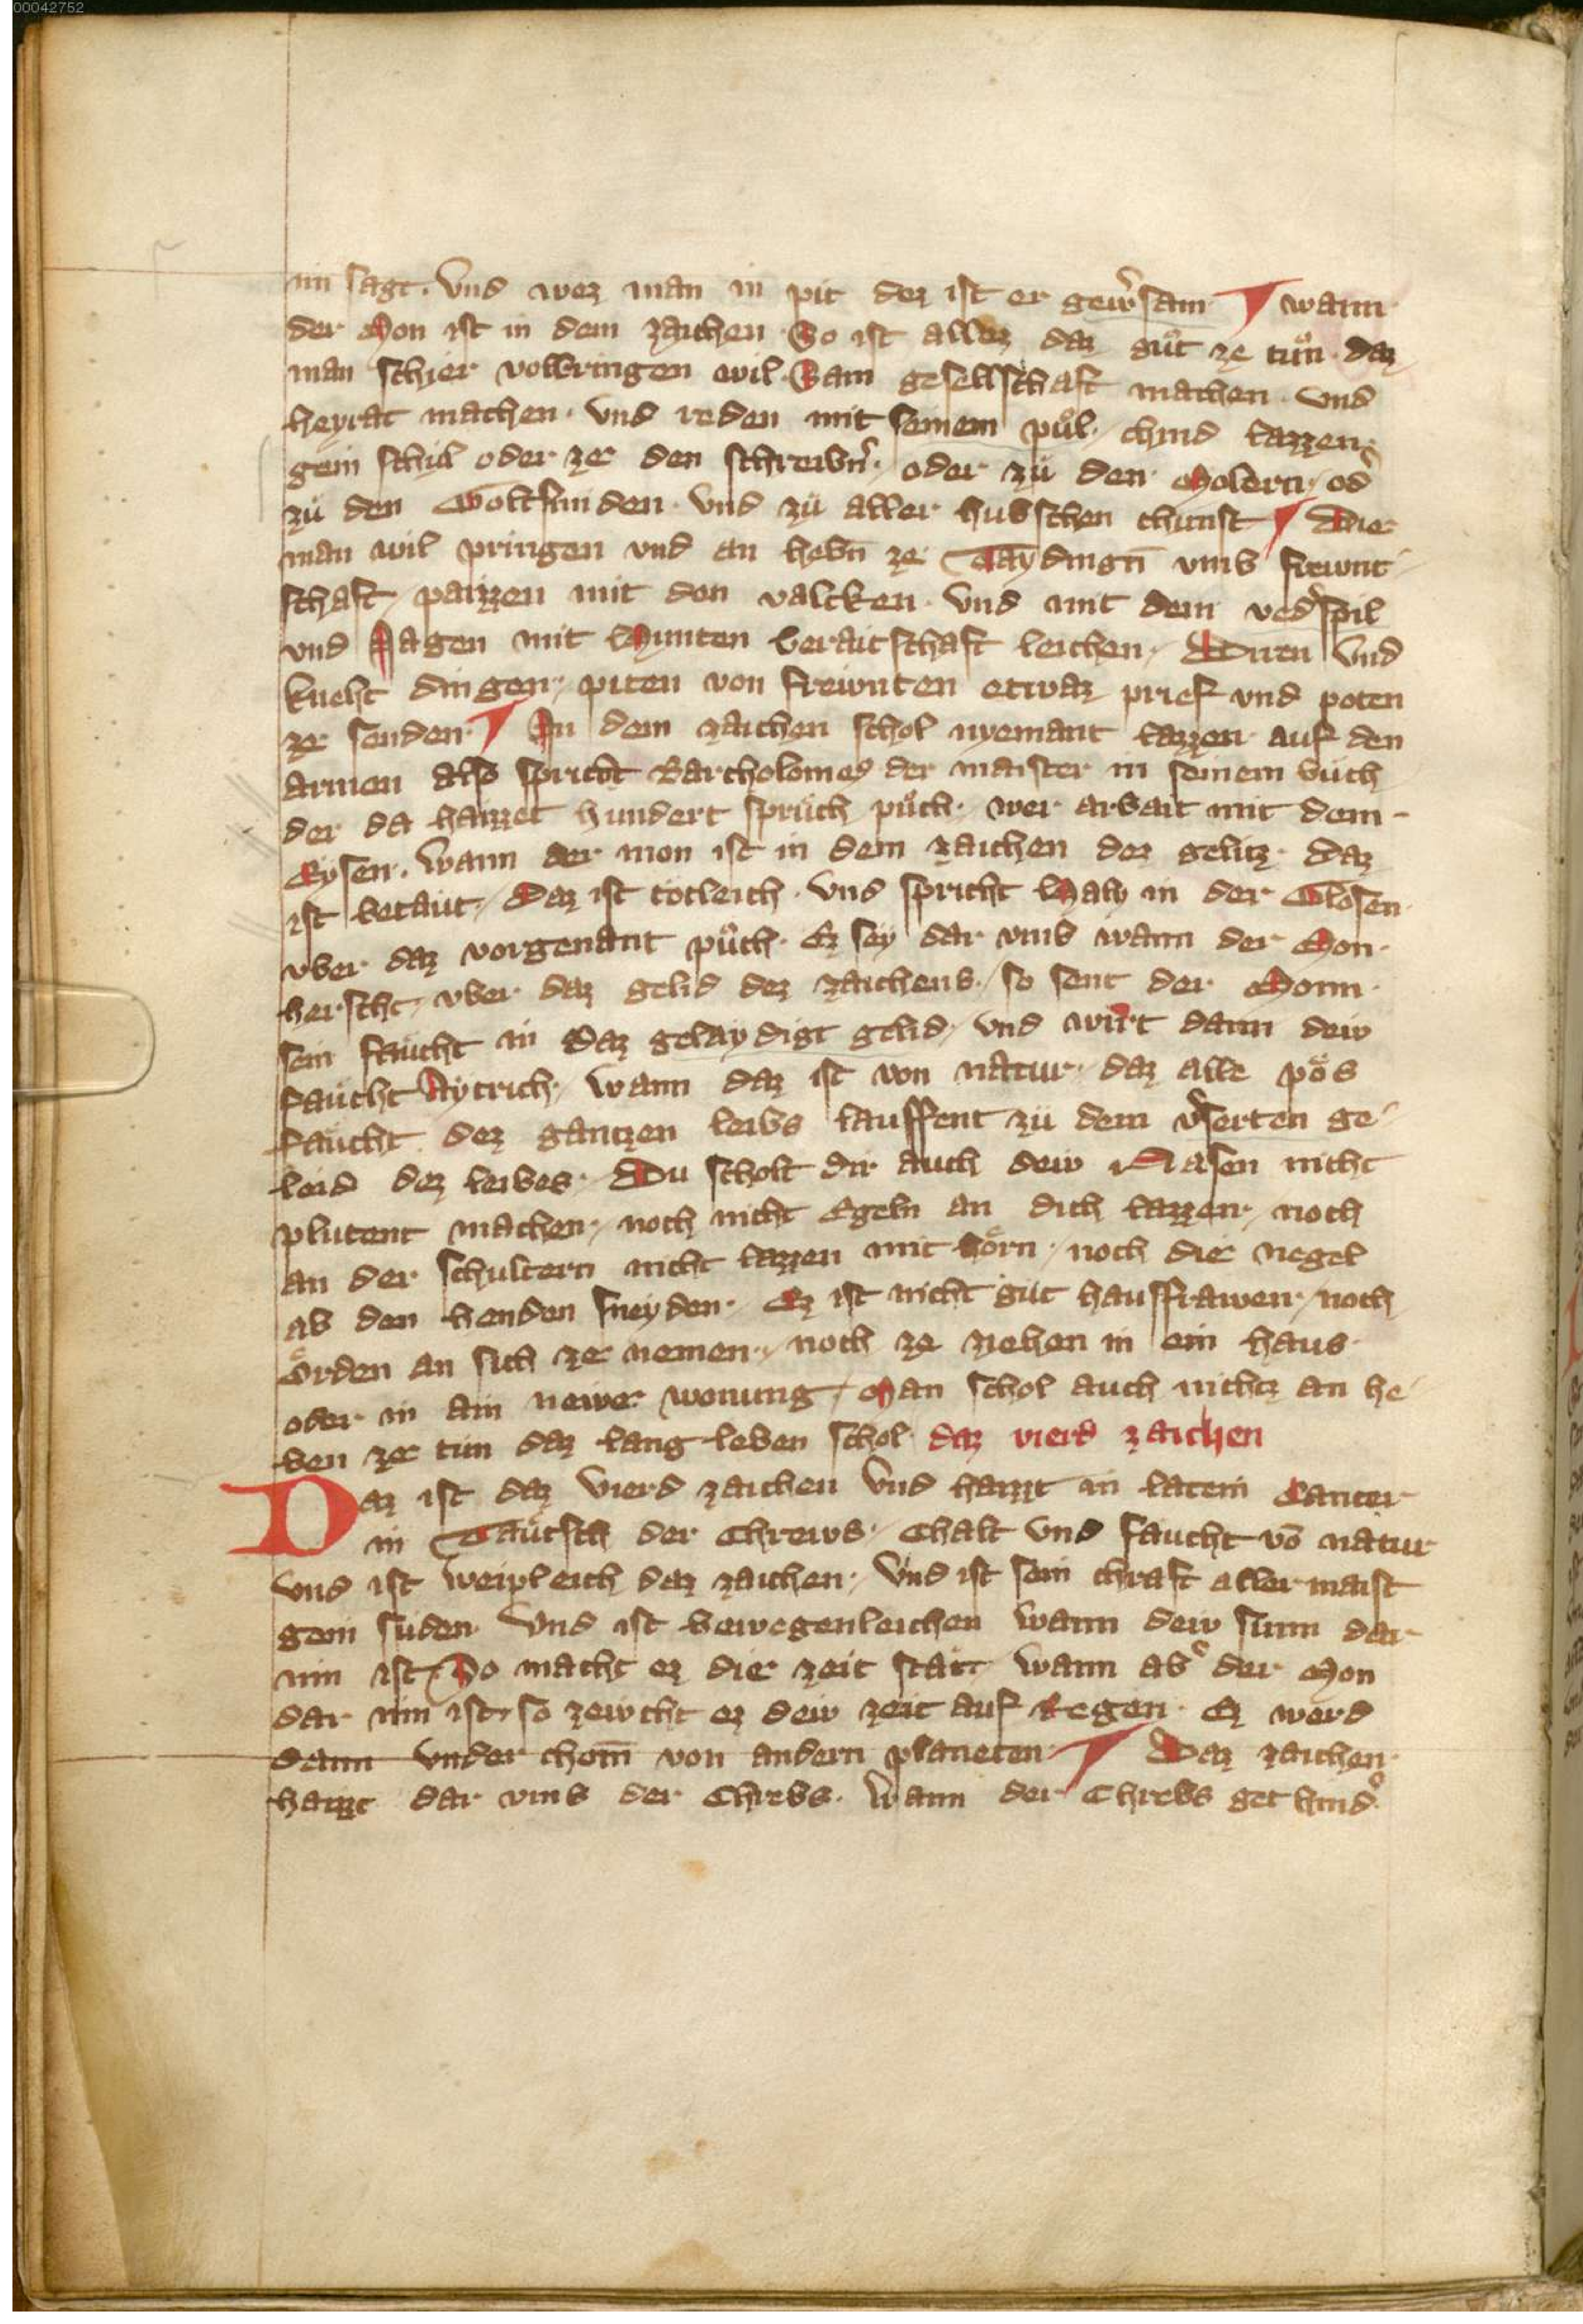 00042752
im sagt. Vnd wez man in pit dez ist er gew͛sam ¶ wann
der Mon ist in dem zaichen. So ist allez daz gůt ze tůn. daz
man schier volbringen wil. Sam gesellschaft machen. Vnd
heyrat machen. Vnd reden mit seinem půl. chind lazzen
gein schůl oder ze den schreibn͛. oder zů den Molern. od͛
zů den Goltsmiden. Vnd zů aller hubschen chunst ¶ Wie
man wil pringen vnd an hebn̄ ze Taydingn̄ vmb frewnt
schaft. paizzen mit den valcken. Vnd mit dem ved͛spil
vnd Jagen mit Hunten beraitschaft leichen. Diren Vnd
kneht dingen. piten von frewnten etwaz prief vnd poten
ze senden ¶ In dem zaichen schol nyemant lazzen auf den
armen also spricht Bartholomeꝰ der maister in seinem buch
der da haizzet hundert sprüch půch. wer arbait mit dem
Eysen. Wann der mon ist in dem zaichen dez gelitz. daz
ist betaut. Daz ist totleich. Vnd spricht Haly in der Glosen
vber daz vorgenant půch. Ez sey dar vmb wann der Mon
herscht vber daz gelid dez zaichens. so sent der Monn
sein faucht in Daz gelaydigt gelid. Vnd wirt dann dew
faucht Aytrich. Wann daz ist von natur. daz alle pös
faucht dez gantzen leibs lauffent zů dem v͛serten ge
leid dez leibes. Du scholt dir auch dew Nasen nicht
plutent machen. noch nicht Egeln an dich lazzen. noch
an der schultern nicht lazzen mit hörn. noch die negel
ab den henden sneyden. Ez ist nicht gut hausfrawen. noch
örden an sich ze nemen. noch ze ziehen in ein haus
oder in ain newe wonung. Man schol auch nichtz an he
ben ze tun daz lang leben schol. daz vierd zaichen
Daz ist daz Vierd zaichen Vnd haizzt in latein Cancer
in Täutsch der Chrews. Chalt Vnd faucht vō natur
vnd ist weipleich daz zaichen. Vnd ist sein chraft aller maist
gein suden. Vnd ist bewegenleichen Wann dew sunn dar
inn ist. So macht ez die zeit stät. Wann ab͛ der Mon
dar inn ist. so zewcht ez dew zeit auf Regen. Ez werd
dann vnder chom̄ von andern planeten ¶ Daz zaichen
haizzt dar vmb der Chrebs. Wann der Chrebs get hind͛